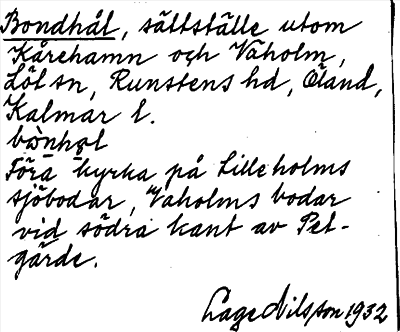 Bondhål, sältställe utom
Kårehamn och Vaholm,
Löt sn, Runstens hd, Öland,
Kalmar l.
bònhol
Föra kyrka på Lilleholms
sjöbodar, Vaholms bodar
vid södra kant av Pet-
gärde.
Lage Nilsson 1932